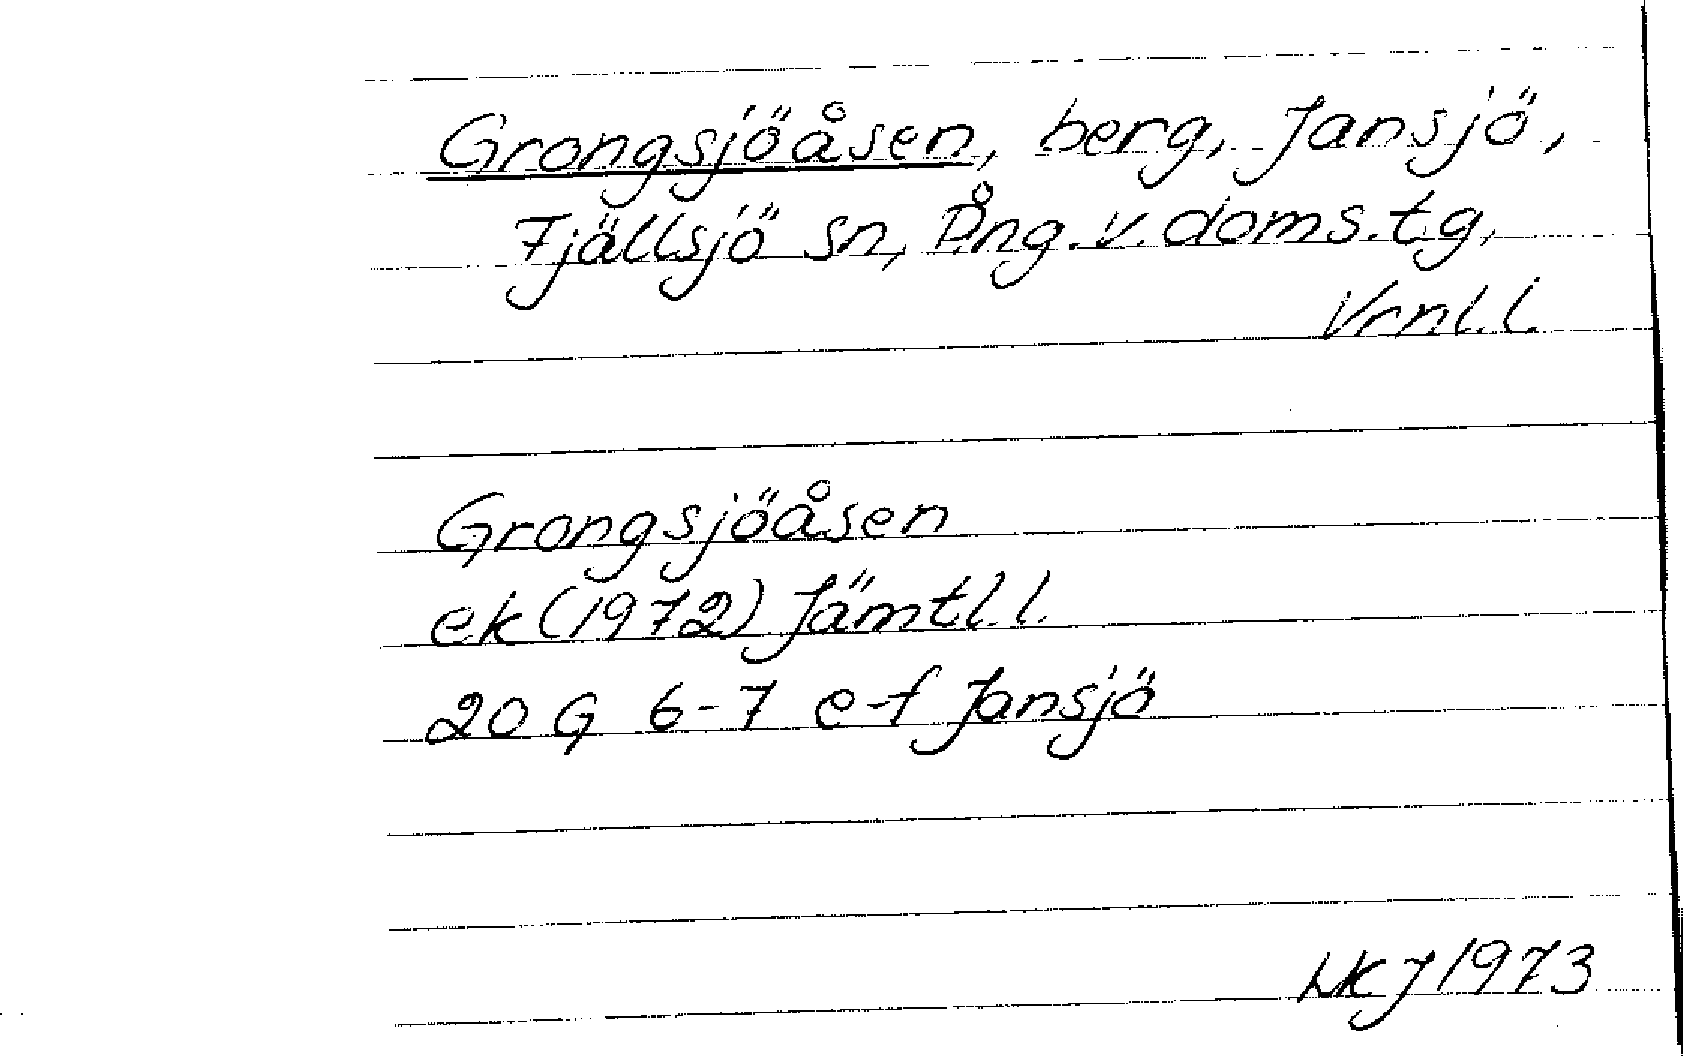 Grongsjöåsen, berg, Jansjö,
Fjällsjö sn, Ång. v. doms.t.g,
Vrnl.l.
Grongsjöåsen
ek (1972) Jämtl.l.
20 G 6-7 e-f Jansjö
LKJ 1973